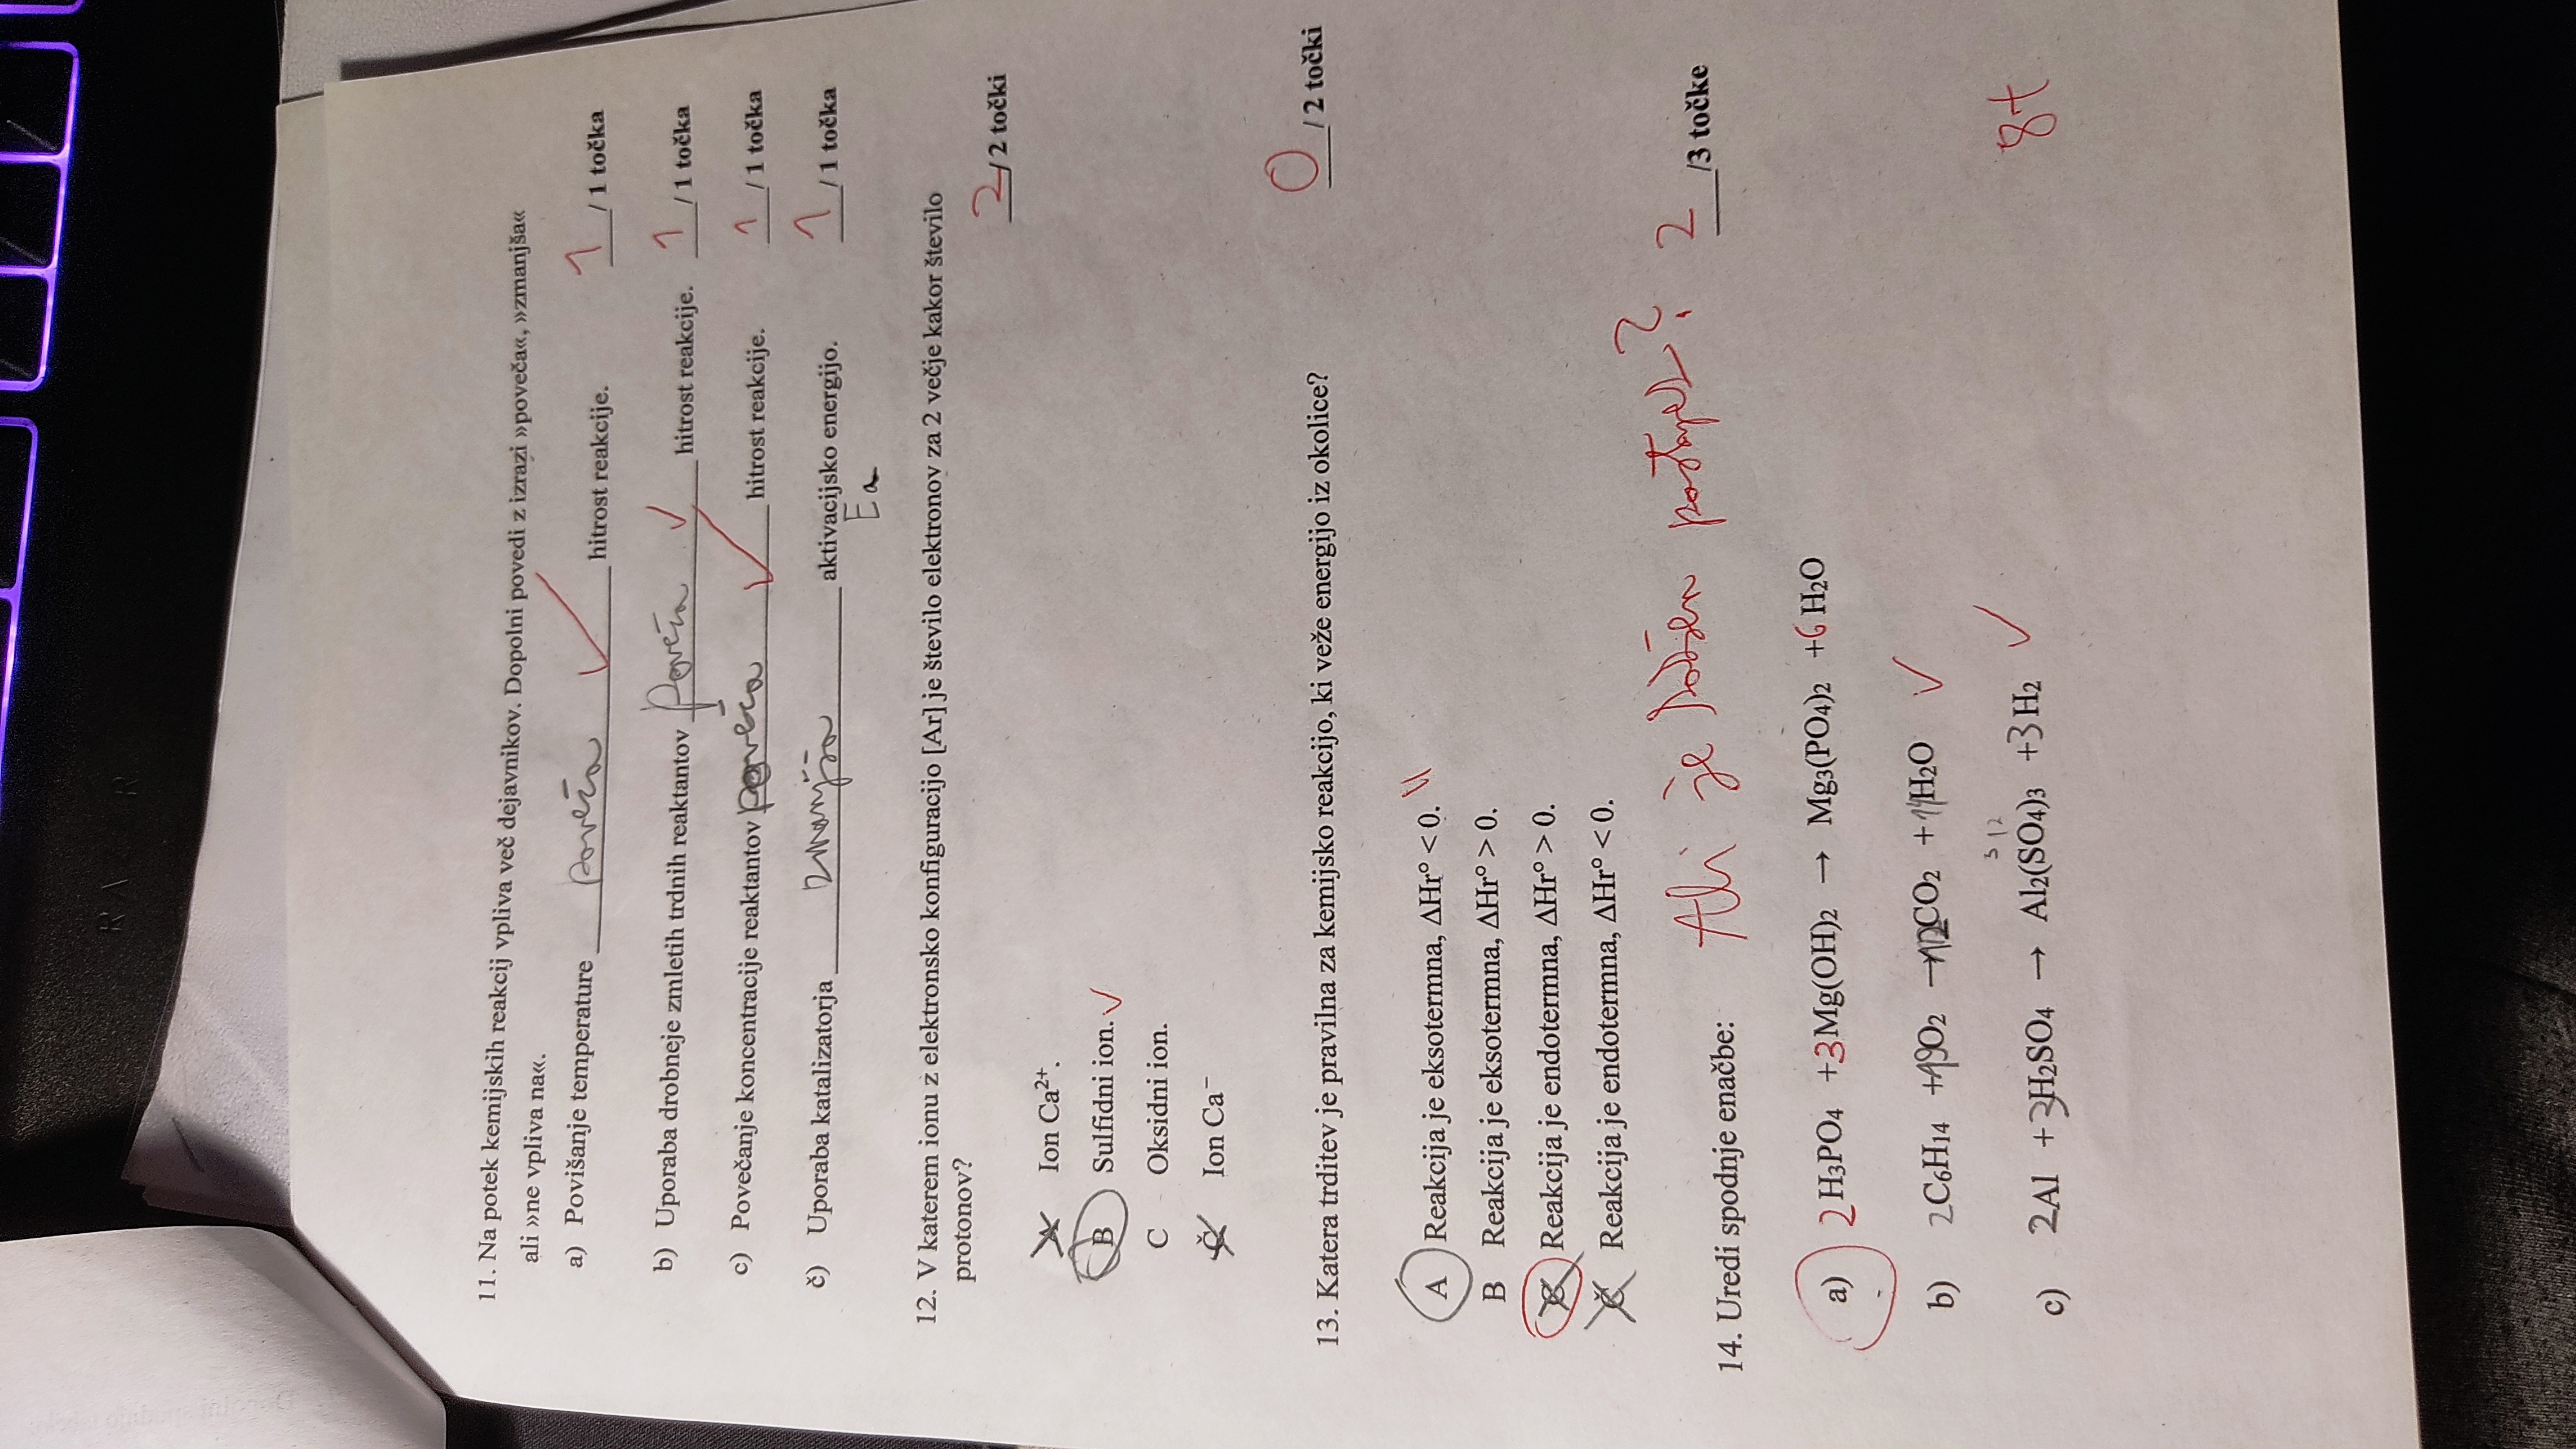 RAZER
11. Na potek kemijskih reakcij vpliva več dejavnikov. Dopolni povedi z izrazi »poveča«, »zmanjša«
ali »ne vpliva na«.
a) Povišanje temperature poveča hitrost reakcije. 1 / 1 točka
b) Uporaba drobneje zmletih trdnih reaktantov poveča hitrost reakcije. 1 / 1 točka
c) Povečanje koncentracije reaktantov poveča hitrost reakcije. 1 / 1 točka
č) Uporaba katalizatorja zmanjša aktivacijsko energijo. 1 / 1 točka
Ea
12. V katerem ionu z elektronsko konfiguracijo [Ar] je število elektronov za 2 večje kakor število
protonov?
2 / 2 točki
A Ion Ca²⁺.
B Sulfidni ion.
C Oksidni ion.
Č Ion Ca⁻
13. Katera trditev je pravilna za kemijsko reakcijo, ki veže energijo iz okolice? 0 / 2 točki
A Reakcija je eksotermna, ΔHr° < 0.
B Reakcija je eksotermna, ΔHr° > 0.
C Reakcija je endotermna, ΔHr° > 0.
Č Reakcija je endotermna, ΔHr° < 0.
14. Uredi spodnje enačbe: Ali je 2 /3 točke
a) 2 H₃PO₄ + 3 Mg(OH)₂ → Mg₃(PO₄)₂ + 6 H₂O
b) 2 C₆H₁₄ + 19 O₂ → 12 CO₂ + 14 H₂O
3 12
c) 2 Al + 3 H₂SO₄ → Al₂(SO₄)₃ + 3 H₂
8t